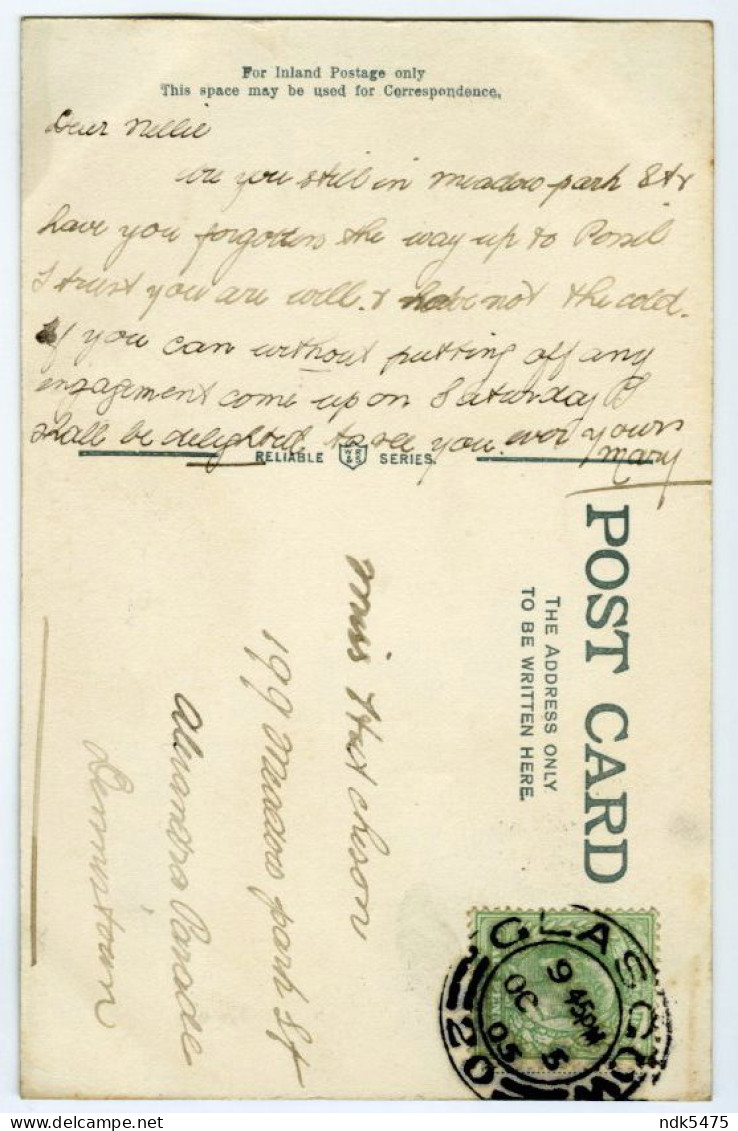 For Inland Postage only
This space may be used for Correspondence.
Dear Nellie
are you still in meadowpark Str
have you forgotten the way up to Possil
I trust you are well. & have not the cold.
If you can without putting off any
engagement come up on Saturday I
shall be delighted to see you. ever yours
Mary
RELIABLE WR&S SERIES.
POST CARD
THE ADDRESS ONLY
TO BE WRITTEN HERE.
Miss Hutcheson
199 Meadow park St
Alexandra Parade
Dennistoun
GLASGOW
9 45PM
OC 5
05
20
ndk5475